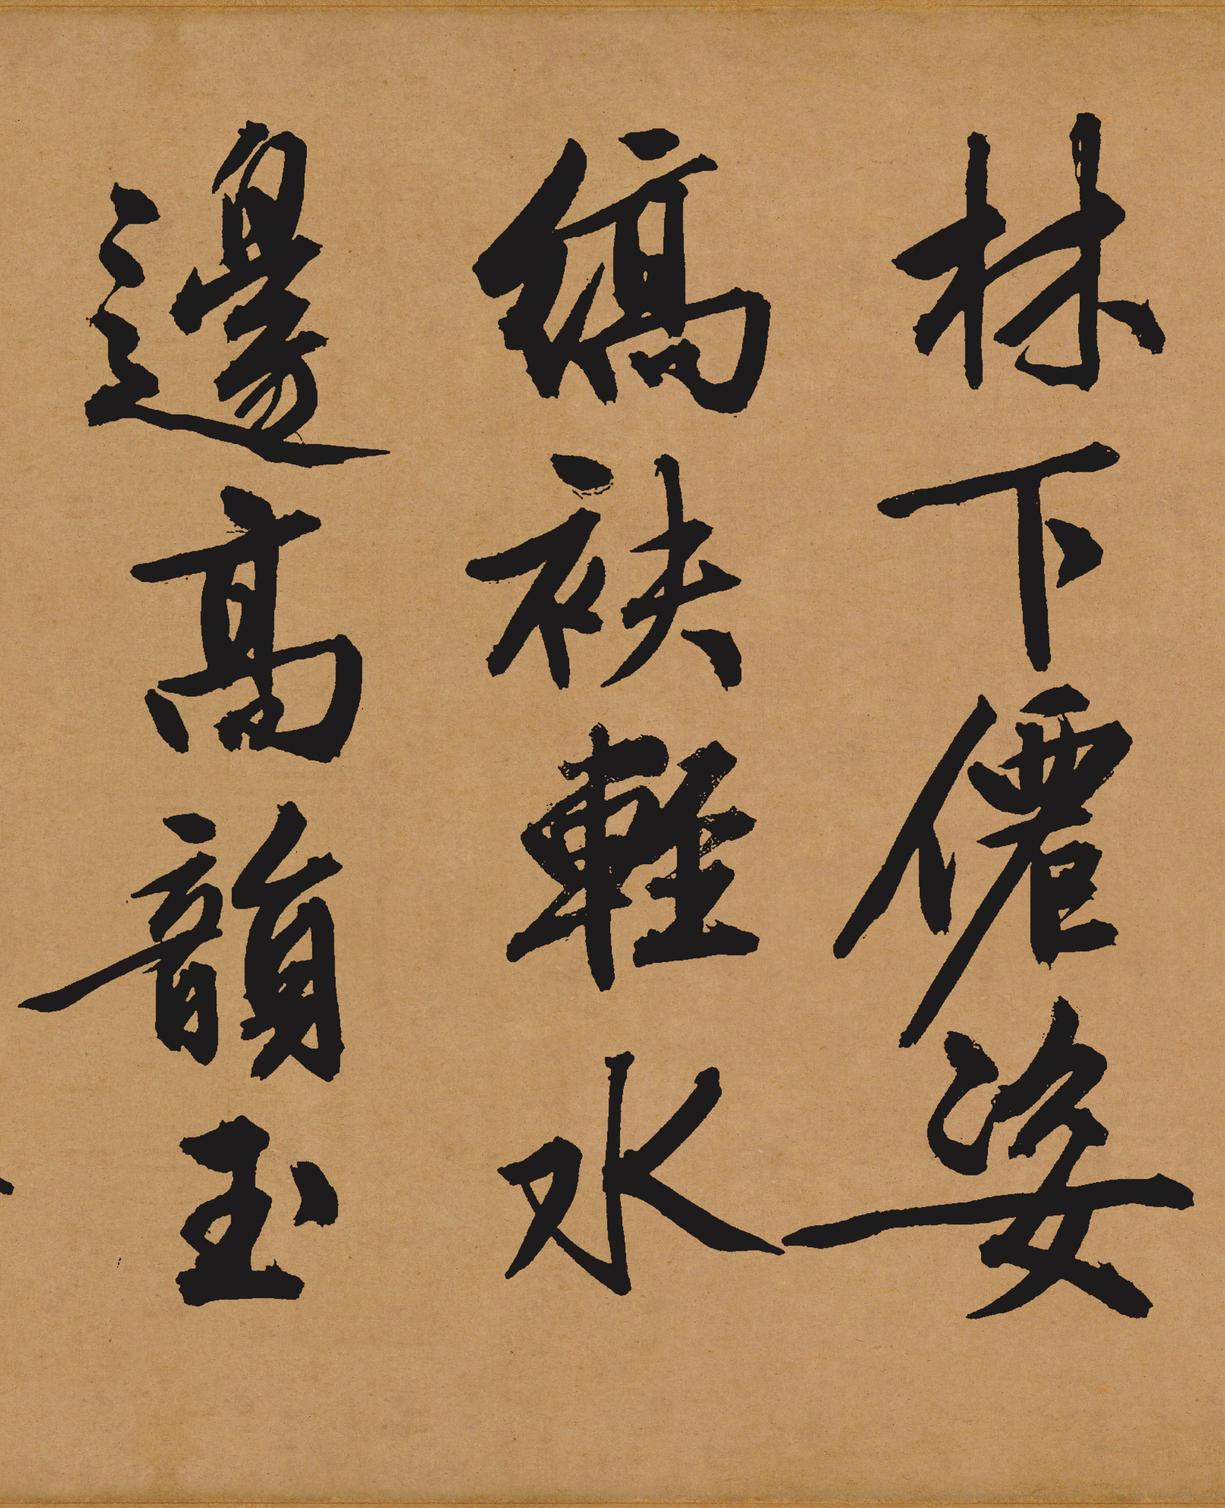 林下僊姿
縞袂輕水
邊高韻玉